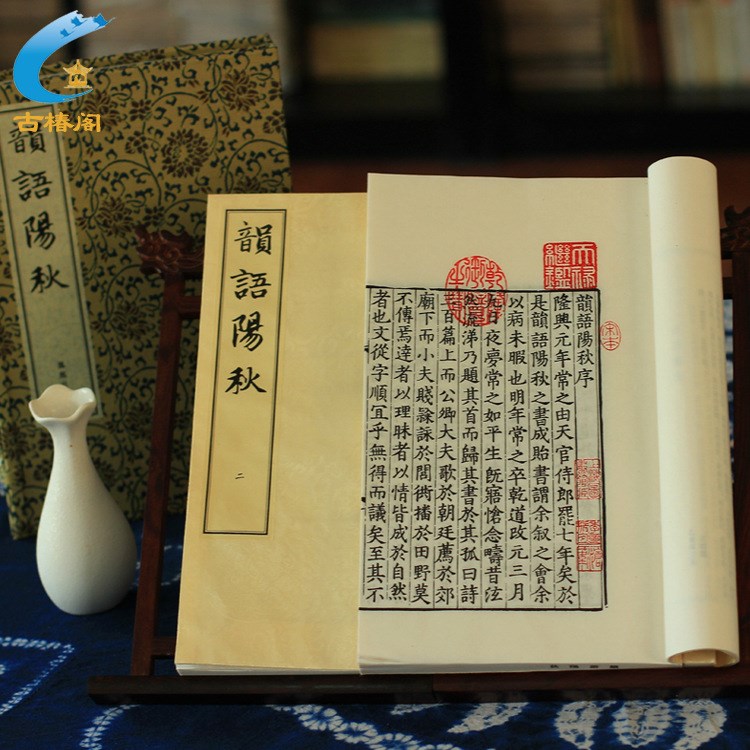 古椿阁
韻語陽秋
韻語陽秋
二
韻語陽秋序
隆興元年常之由天官侍郎罷七年矣於
是韻語陽秋之書成貽書謂余叙之會余
以病未暇也明年常之卒乾道改元三月
九日夜夢常之如平生旣寤愴念疇昔泫
然流涕乃題其首而歸其書於其孤曰詩
三百篇上而公卿大夫歌於朝廷薦於郊
廟下而小夫賤隸詠於閭術播於田野莫
不傳焉達者以理昧者以情皆成於自然
者也文從字順冝乎無得而議矣至其不
天祿
繼鑑
乾隆
御覽
之寶
宋本